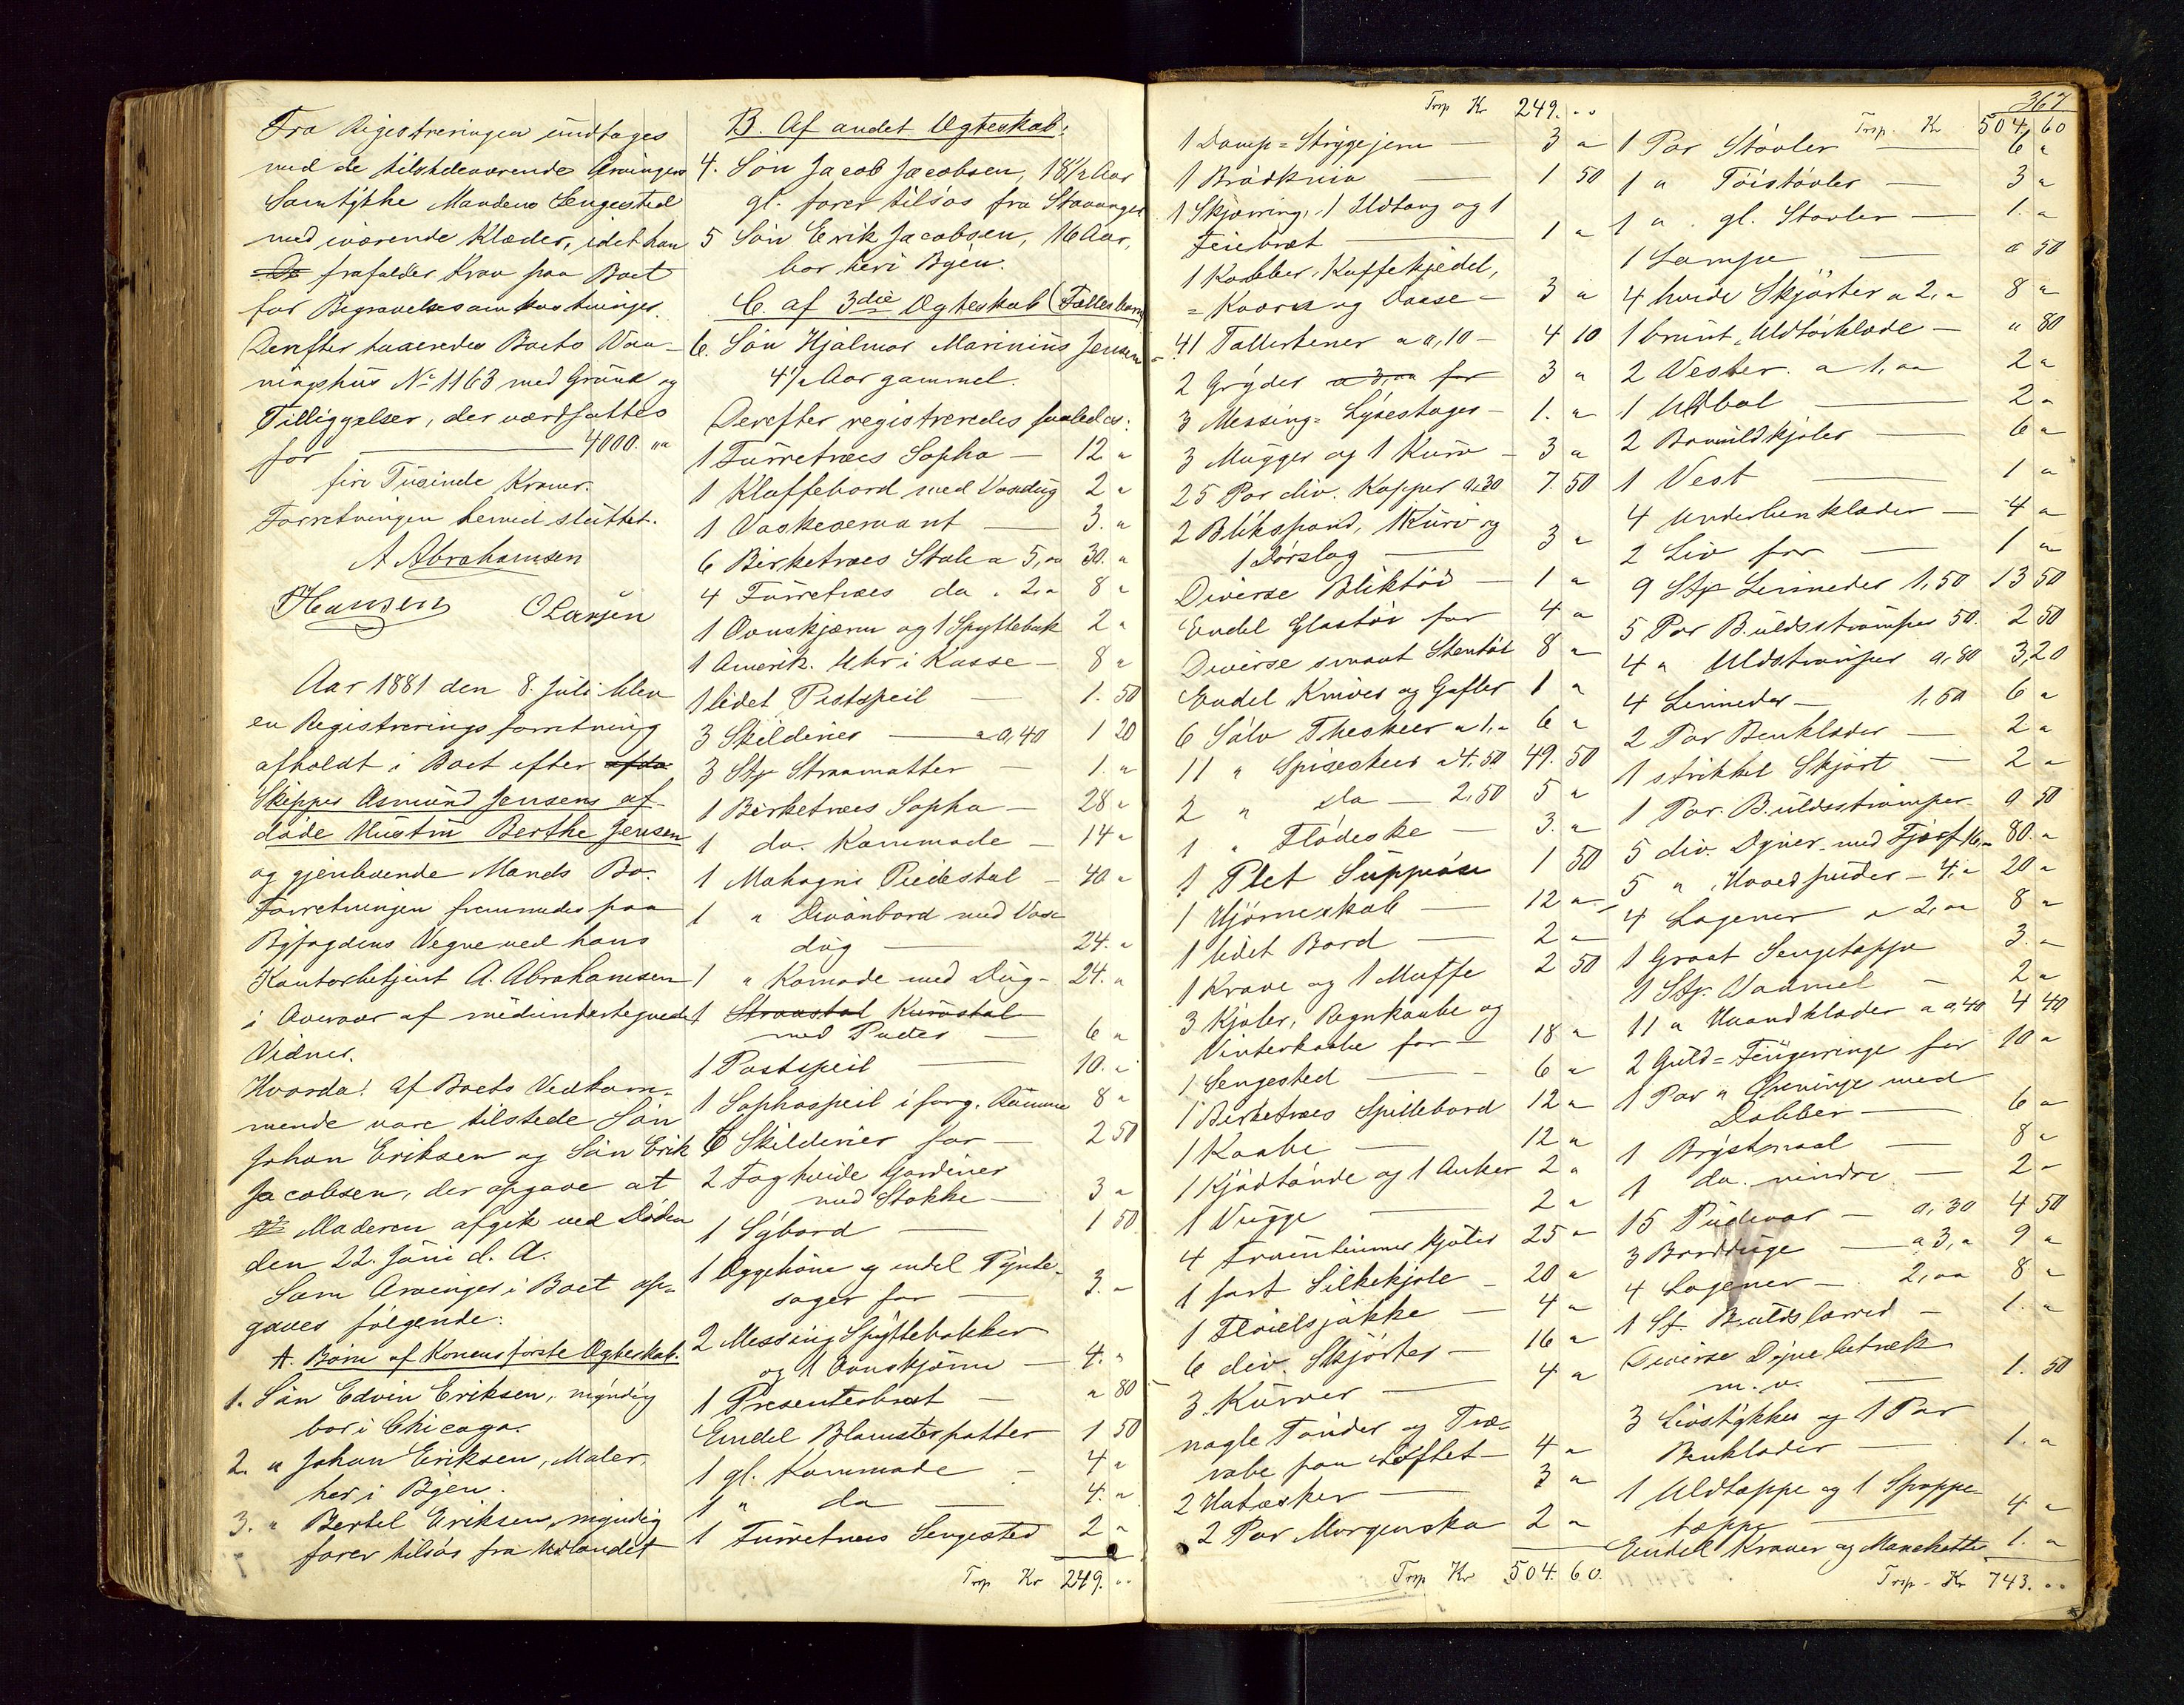 Fra Registreringen undtages
med de tilstedeværende Arvingers
Samtykke Mandens Sengested
med iværende Klæder, idet han
frafalder Krav paa Boet
for Begravelsesomkostninger.
Derefter taxeredes Boets Vaa-
ningshus No 1163 med Grund og
Tilliggelser, der værdsattes
for — 4000. "
fire Tusinde Kroner.
Forretningen hermed sluttet.
A Abrahamsen
Hansen O Larsen
Aar 1881 den 8. Juli blev
en Registreringsforretning
afholdt i Boet efter afdø
Skipper Asmund Jensens af-
døde Hustru Berthe Jensen
og gjenlevende Mands Bo.
Forretningen fremmedes paa
Byfogdens Vegne ved hans
Kontorbetjent A. Abrahamsen
i Overvær af medundertegnede
Vidner.
Hvorda! Af Boets Vedkom-
mende vare tilstede Søn
Johan Eriksen og Søn Erik
Jacobsen, der opgave at
Moderen afgik ved Døden
den 22. Juni d. A.
Som Arvinger i Boet op-
gaves følgende:
A. Børn af Konens første Ægteskab.
1. Søn Edvin Eriksen, myndig
bor i Chicago.
2. " Johan Eriksen, Maler,
her i Byen.
3. " Bertel Eriksen, myndig
farer tilsøs fra Udlandet
B. Af andet Ægteskab:
4. Søn Jacob Jacobsen, 18 1/2 Aar
gl. farer tilsøs fra Stavanger
5 Søn Erik Jacobsen, 16 Aar,
bor heri Byen.
C. af 3die Ægteskab (Fælles Barn)
6. Søn Hjalmar Marinius Jensen
4 1/2 Aar gammel.
Derefter registreredes saaledes:
1 Furretræes Sopha — 12 "
1 Klaffebord med Voxdug 2 "
1 Vaskeservant — 3. "
6 Birketræes Stole a 5,00 30. "
4 Furretræes do " 2," 8 "
1 Ovnskjærm og 1 Spyttebak 2 "
1 Amerik. Uhr i Kasse — 8 "
1 lidet Postspeil — 1. 50
3 Skilderier — a 0,40 1 20
3 Stk Straamatter — 1. "
1 Birketræes Sopha — 28 "
1 do. Kommode — 14 "
1 Mahogni Piedestal — 40 "
1 " Divanbord med Vox
dug — 24. "
1 " Komode med Dug — 24. "
1 Straastol Kurvstol
med Puder — 6 "
1 Postspeil — 10. "
1 Sophaspeil i forg. Ramme 8 "
6 Skilderier for — 2 50
2 Fag hvide Gardiner
med Stokke — 3 "
1 Sybord — 1 50
1 Æggehøne og endel Pynte-
sager for — 3. "
2 Messing Spyttebakker
og 1 Ovnskjærm — 4. "
1 Presenterbræt — " 80
Endel Blomsterpotter 1 50
1 gl. Kommode — 4 "
1 " do — 4. "
1 Furretræes Sengested 2 "
Trsp Kr 249. "
Trsp Kr 249. "
1 Damp-Strygejern — 3 "
1 Brødkniv — 1 50
1 Skjæring, 1 Ildtang og 1
Feiebræt — 1 "
1 Kobber Kaffekjedel,
- Kværn og Daase — 3 "
41 Tallerkener a 0,10 — 4 10
2 Gryder a 3,00 for 3 "
3 Messing-Lysestager — 1. "
3 Mugger og 1 Kurv — 3 "
25 Par div. Kopper 0,30 7. 50
2 Blikspand, 1 Kurv og
1 Dørslag — 3 "
Diverse Bliktøi — 1 "
Endel Glastøi for 4 "
Diverse smaat Stentøi 8 "
Endel Knive og Gafler 1 "
6 Sølv Theskeer a 1," 6 "
11 " Spiseskeer a 4,50 49. 50
2 " do — 2,50 5 "
1 " Flødeske — 3. "
1 Plet Suppeøse 1 50
1 Hjørneskab — 12 "
1 lidet Bord — 2 "
1 Krave og 1 Muffe 2 50
3 Kjoler, Regnkaabe og
Vinterkaabe for — 18 "
1 Sengested — 6 "
1 Birketræes Spillebord 12 "
1 Kaabe — 12 "
1 Kjødtønde og 1 Anker 2 "
1 Vugge — 2 "
4 Fruentimmer Kjoler 25 "
1 sort Silkekjole — 20 "
1 Fløielsjakke — 4 "
6 div. Skjørter — 16 "
3 Kurver — 4 "
nogle Tønder og Træ-
rabe paa Loftet — 4 "
2 Hatæsker — 3 "
2 Par Morgensko 2 "
Trsp Kr 504. 60.
367
Trsp. Kr 504. 60
1 Par Støvler — 6 "
1 " Tøistøvler — 3 "
1 " gl. Støvler — 1. "
1 Lampe — " 50
4 hvide Skjørter a 2," 8 "
1 brunt Uldtørklæde — " 80
2 Vester a 1,00 2 "
1 Uldbol — 2 "
2 Bomuldkjoler — 6 "
1 Vest — 1 "
4 Underbenklæder — 4 "
2 Liv for — 1 "
9 Stk Linneder 1,50 13 50
5 Par B.uldsstrømper 50. 2 50
4 " Uldstrømper 0,80 3,20
4 Linneder — 1,50 6 "
2 Par Benklæder — 2 "
1 strikket Skjørt — 2 "
1 Par B.uldsstrømper " 50
5 div. Dyner med Fjær f 16," 80. "
5 " Hovedpuder — 4," 20 "
4 Lagener a 2,00 8 "
1 Graat Sengetæppe 3. "
1 Stk. Vadmel — 2 "
11 " Haandklæder a 0,40 4 40
2 Guld-Fingerringe for 10 "
1 Par " Øreringe med
Dobber — 6 "
1 Brystnaal — 8 "
1 do. mindre — 2 "
15 Pudevar — 0,30 4 50
3 Borddúge — a 3," 9 "
4 Lagener — 2,00 8 "
1 St. B.uldslærred — 1. "
Diverse Dynebetræk
m. v. — 1. 50
3 Livstykker og 1 Par
Benklæder — 1. "
1 Uldtæppe og 1
tæppe — 4 "
Endel Kraver og Manchetter 1. "
Trsp. Kr 743. "